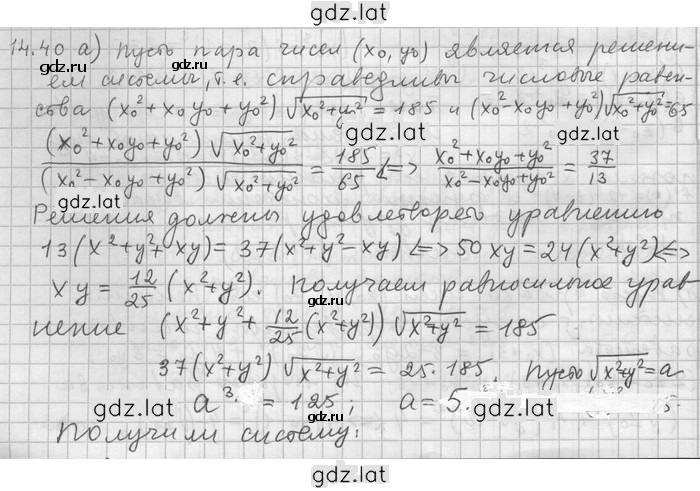 gdz.lat
14.40 а) Пусть пара чисел (x₀, y₀) является решени-
ем системы, т.е. справедливы числовые равен-
gdz.lat
ства (x₀²+x₀y₀+y₀²)√(x₀²+y₀²) = 185 и (x₀²-x₀y₀+y₀²)√(x₀²+y₀²)=65
gdz.lat gdz.lat
((x₀²+x₀y₀+y₀²)√(x₀²+y₀²))/((x₀²-x₀y₀+y₀²)√(x₀²+y₀²)) = 185/65 <=> (x₀²+x₀y₀+y₀²)/(x₀²-x₀y₀+y₀²) = 37/13
gdz.lat
Решения должны удовлетворять уравнению
13(x²+y²+xy)=37(x²+y²-xy) <=> 50xy=24(x²+y²) <=>
gdz.lat
xy = 12/25 (x²+y²). Получаем равносильное урав
gdz.lat gdz.lat
нение (x²+y²+12/25(x²+y²))√(x²+y²) = 185
37(x²+y²)√(x²+y²) = 25·185. Пусть √(x²+y²)=a
gdz.lat
a³ = 125; a = 5.
gdz.lat gdz.lat
Получили систему:
gdz.lat